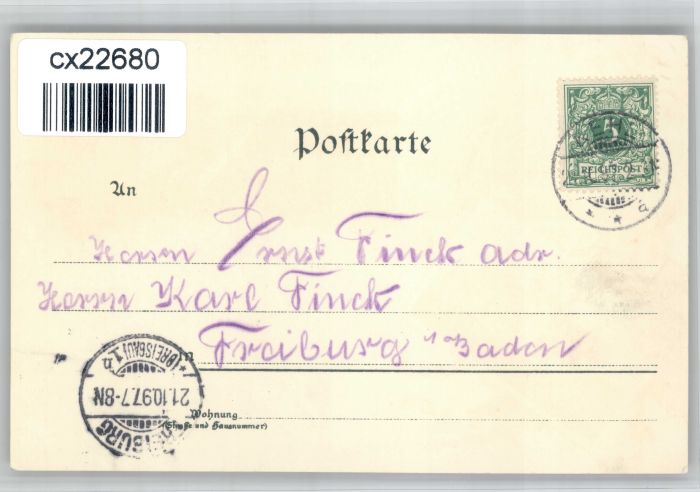 cx22680
Postkarte
5
REICHSPOST
An
Herrn Ernst Finck adr.
Herrn Karl Finck
in
Freiburg i. Baden
Wohnung
(Straße und Hausnummer)
FREIBURG
21.10.97.7-8N
*(BREISGAU)1.d